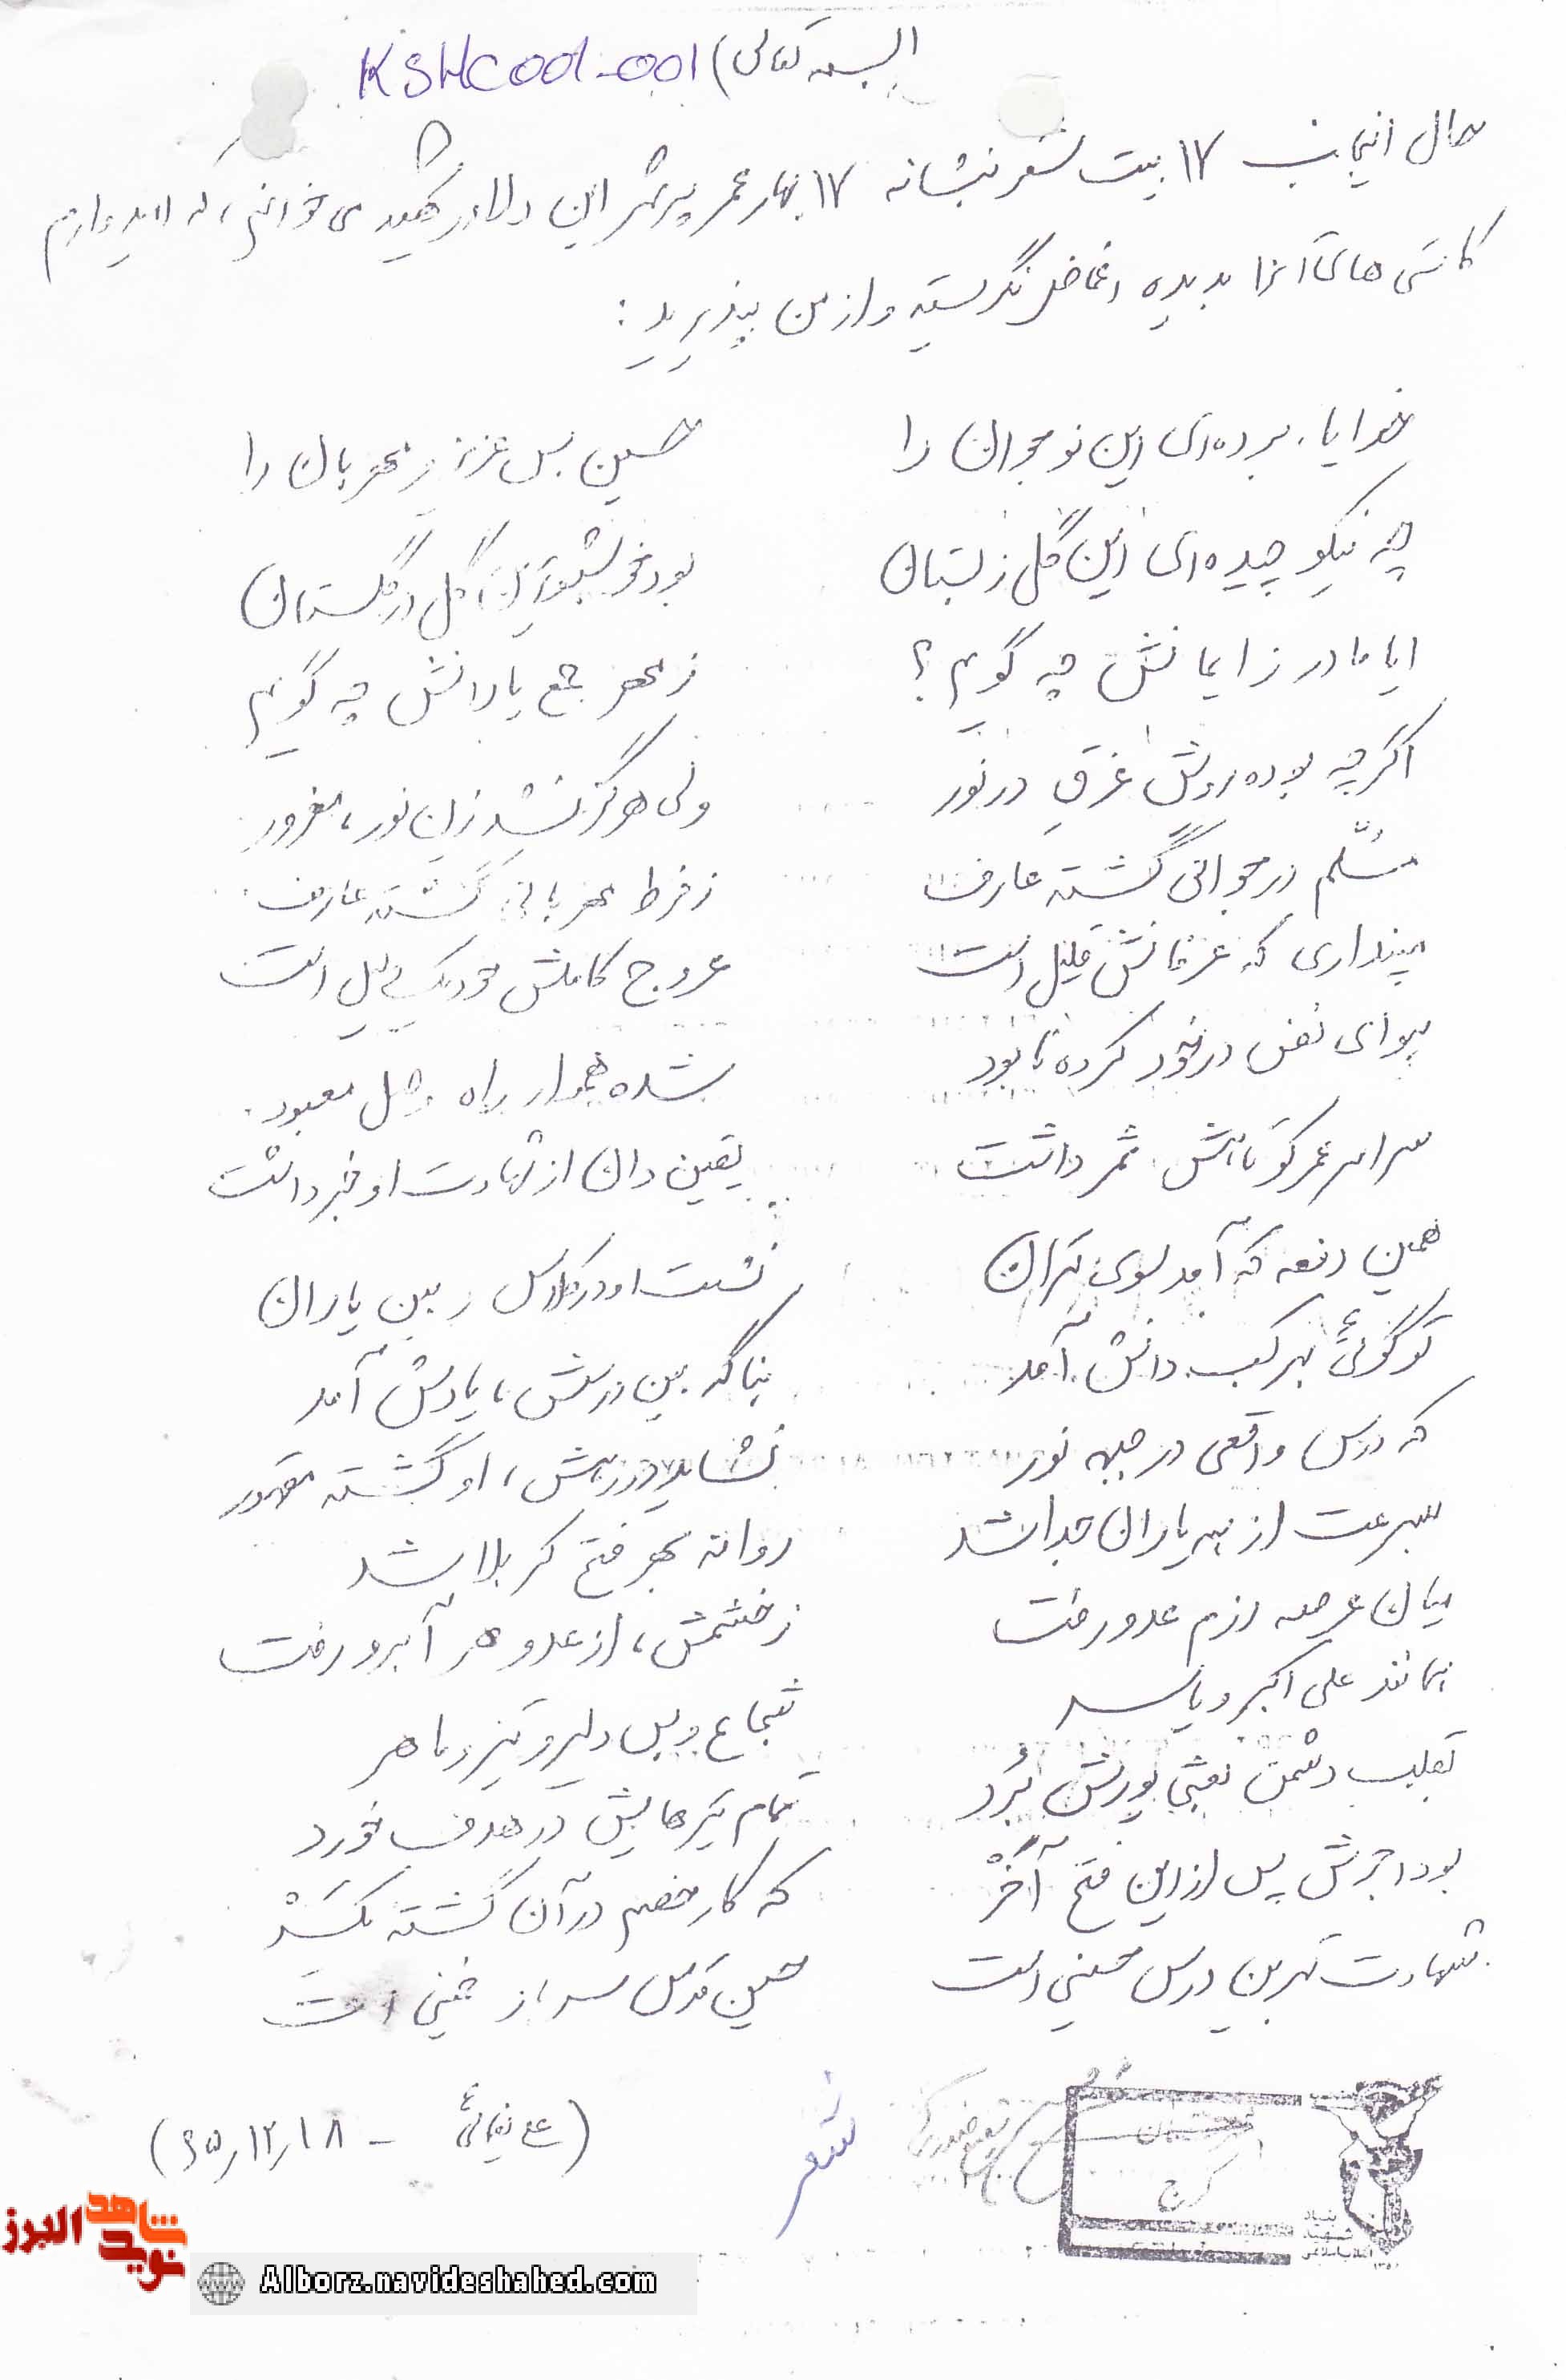 (بسمه تعالی) KSHC001-001
حال اینجانب ۱۷ بیت شعر بنشانه ۱۷ بهار عمر پرثمر این دلاور شهید می خوانم، که امیدوارم
کاستی های آنرا بدیده اغماض نگریسته و از من بپذیرید:
خدایا، برده‌ای این نوجوان را حسین بس عزیز و مهربان را
چه نیکو چیده‌ای این گل ز بستان بود این گل در گلستان
ایا مادر ز ایمانش چه گویم؟ ز مهر جمع یارانش چه گویم
اگر چه بوده روش غرق در نور ولی هرگز نشد زان نور، مغرور
مسلّم در جوانی گشته عارف ز فرط مهربانی گشته عارف
مپنداری که عرفانش قلیل است عروج کاملش خود یک دلیل است
هوای نفس در خود کرده نابود شده هموار راه وصل معبود
سراسر عمر کوتاهش ثمر داشت یقین دان از شهادت او خبر داشت
همین دفعه که آمد سوی تهران نشست او در کلاس و بین یاران
تو گوئی بهر کسب دانش آمد بناگه بین درسش، یادش آمد
که درس واقعی در جبهه نور او گشته مقهور
بسرعت از بر یاران جدا شد روانه بهر فتح کربلا شد
میان عرصه رزم عدو رفت ز خشمش، از عدو هر آبرو رفت
بمانند علی اکبر و یاسر شجاع و بس دلیر و تیز و ماهر
بقلب دشمن بعثی یورش بُرد تمام تیرهایش در هدف خورد
بود اجرش پس از این فتح آخَرْ که کار خصم در آن گشته یکسَرْ
شهادت بهرین درس حسینی است حسین قدس سرباز خمینی است
شعر
کرج
بنیاد شهید انقلاب اسلامی
(ع نعمائی - ۶۵٫۱۲٫۱۸)
نوید شاهد البرز
Alborz.navideshahed.com